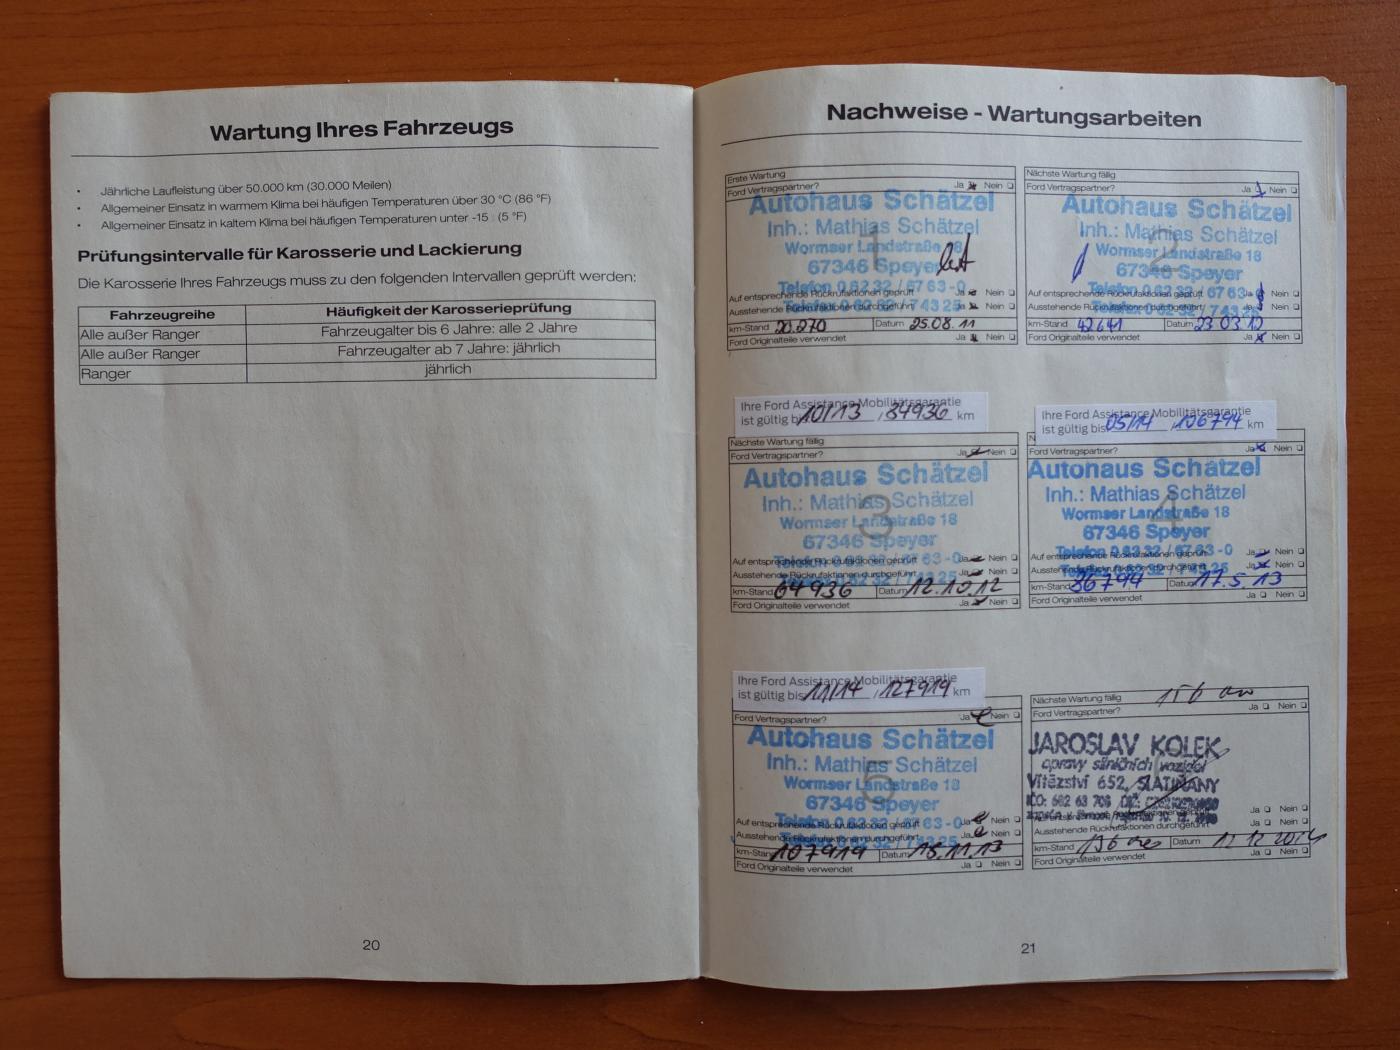 Wartung Ihres Fahrzeugs
• Jährliche Laufleistung über 50.000 km (30.000 Meilen)
• Allgemeiner Einsatz in warmem Klima bei häufigen Temperaturen über 30 °C (86 °F)
• Allgemeiner Einsatz in kaltem Klima bei häufigen Temperaturen unter -15 (5 °F)
Prüfungsintervalle für Karosserie und Lackierung
Die Karosserie Ihres Fahrzeugs muss zu den folgenden Intervallen geprüft werden:
Fahrzeugreihe Häufigkeit der Karosserieprüfung
Alle außer Ranger Fahrzeugalter bis 6 Jahre: alle 2 Jahre
Alle außer Ranger Fahrzeugalter ab 7 Jahre: jährlich
Ranger jährlich
20
Nachweise - Wartungsarbeiten
Erste Wartung
Ford Vertragspartner? Ja Nein
Autohaus Schätzel
Inh.: Mathias Schätzel
Wormser Landstraße 18
67346 Speyer
1
Telefon 0 62 32 / 67 63 - 0
Auf entsprechende Rückrufaktionen geprüft Ja Nein
Ausstehende Rückrufaktionen durchgeführt Ja Nein
km-Stand 20.270 Datum 25.08.11
Ford Originalteile verwendet Ja Nein
Nächste Wartung fällig
Ford Vertragspartner? Ja Nein
Autohaus Schätzel
Inh.: Mathias Schätzel
Wormser Landstraße 18
67346 Speyer
2
Auf entsprechende Rückrufaktionen geprüft Ja Nein
Ausstehende Rückrufaktionen durchgeführt Ja Nein
km-Stand 42641 Datum 23 03 12
Ford Originalteile verwendet Ja Nein
Ihre Ford Assistance Mobilitätsgarantie
ist gültig bis 10/13 / 84936 km
Nächste Wartung fällig
Ford Vertragspartner? Ja Nein
Autohaus Schätzel
Inh.: Mathias Schätzel
Wormser Landstraße 18
67346 Speyer
3
Telefon 0 62 32 / 67 63 - 0
Auf entsprechende Rückrufaktionen geprüft Ja Nein
Ausstehende Rückrufaktionen durchgeführt Ja Nein
km-Stand 64936 Datum 12.10.12
Ford Originalteile verwendet Ja Nein
Ihre Ford Assistance Mobilitätsgarantie
ist gültig bis 05/14 / 106794 km
Ford Vertragspartner? Ja Nein
Autohaus Schätzel
Inh.: Mathias Schätzel
Wormser Landstraße 18
67346 Speyer
4
Telefon 0 62 32 / 67 63 - 0
Auf entsprechende Rückrufaktionen geprüft Ja Nein
Ausstehende Rückrufaktionen durchgeführt Ja Nein
km-Stand 86794 Datum 17.5.13
Ford Originalteile verwendet Ja Nein
Ihre Ford Assistance Mobilitätsgarantie
ist gültig bis 11/14 / 127919 km
Ford Vertragspartner? Ja Nein
Autohaus Schätzel
Inh.: Mathias Schätzel
Wormser Landstraße 18
67346 Speyer
5
Telefon 0 62 32 / 67 63 - 0
Auf entsprechende Rückrufaktionen geprüft Ja Nein
Ausstehende Rückrufaktionen durchgeführt Ja Nein
km-Stand 107919 Datum 15.11.13
Ford Originalteile verwendet Ja Nein
Nächste Wartung fällig
Ford Vertragspartner? Ja Nein
JAROSLAV KOLEK
opravy silničních vozidel
Vítězství 652, SLATIŇANY
IČO: 682 63 708 DIČ:
Ja Nein
Ausstehende Rückrufaktionen durchgeführt Ja Nein
km-Stand Datum 12 12 2014
Ford Originalteile verwendet Ja Nein
21